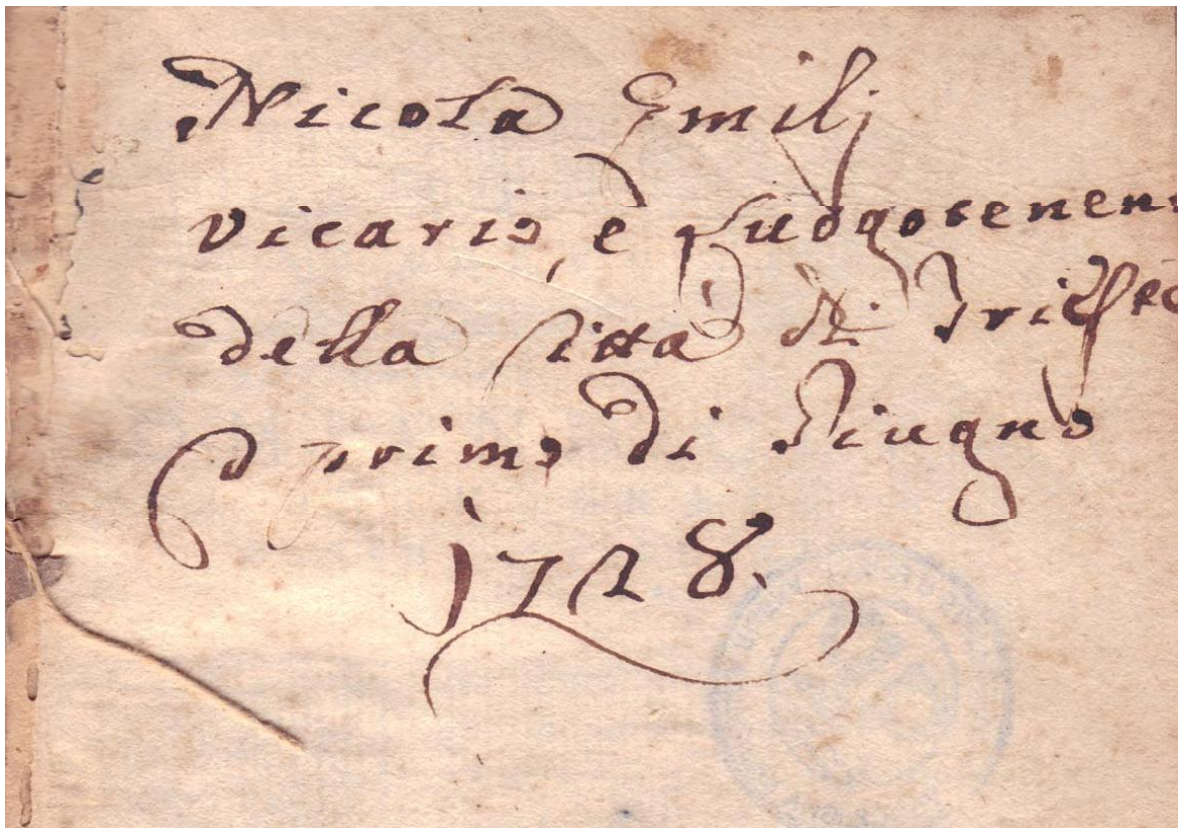 Nicola Emilj
Vicario, e Luogotenen
della Città di Trieste
P primo di Giugno
1728.